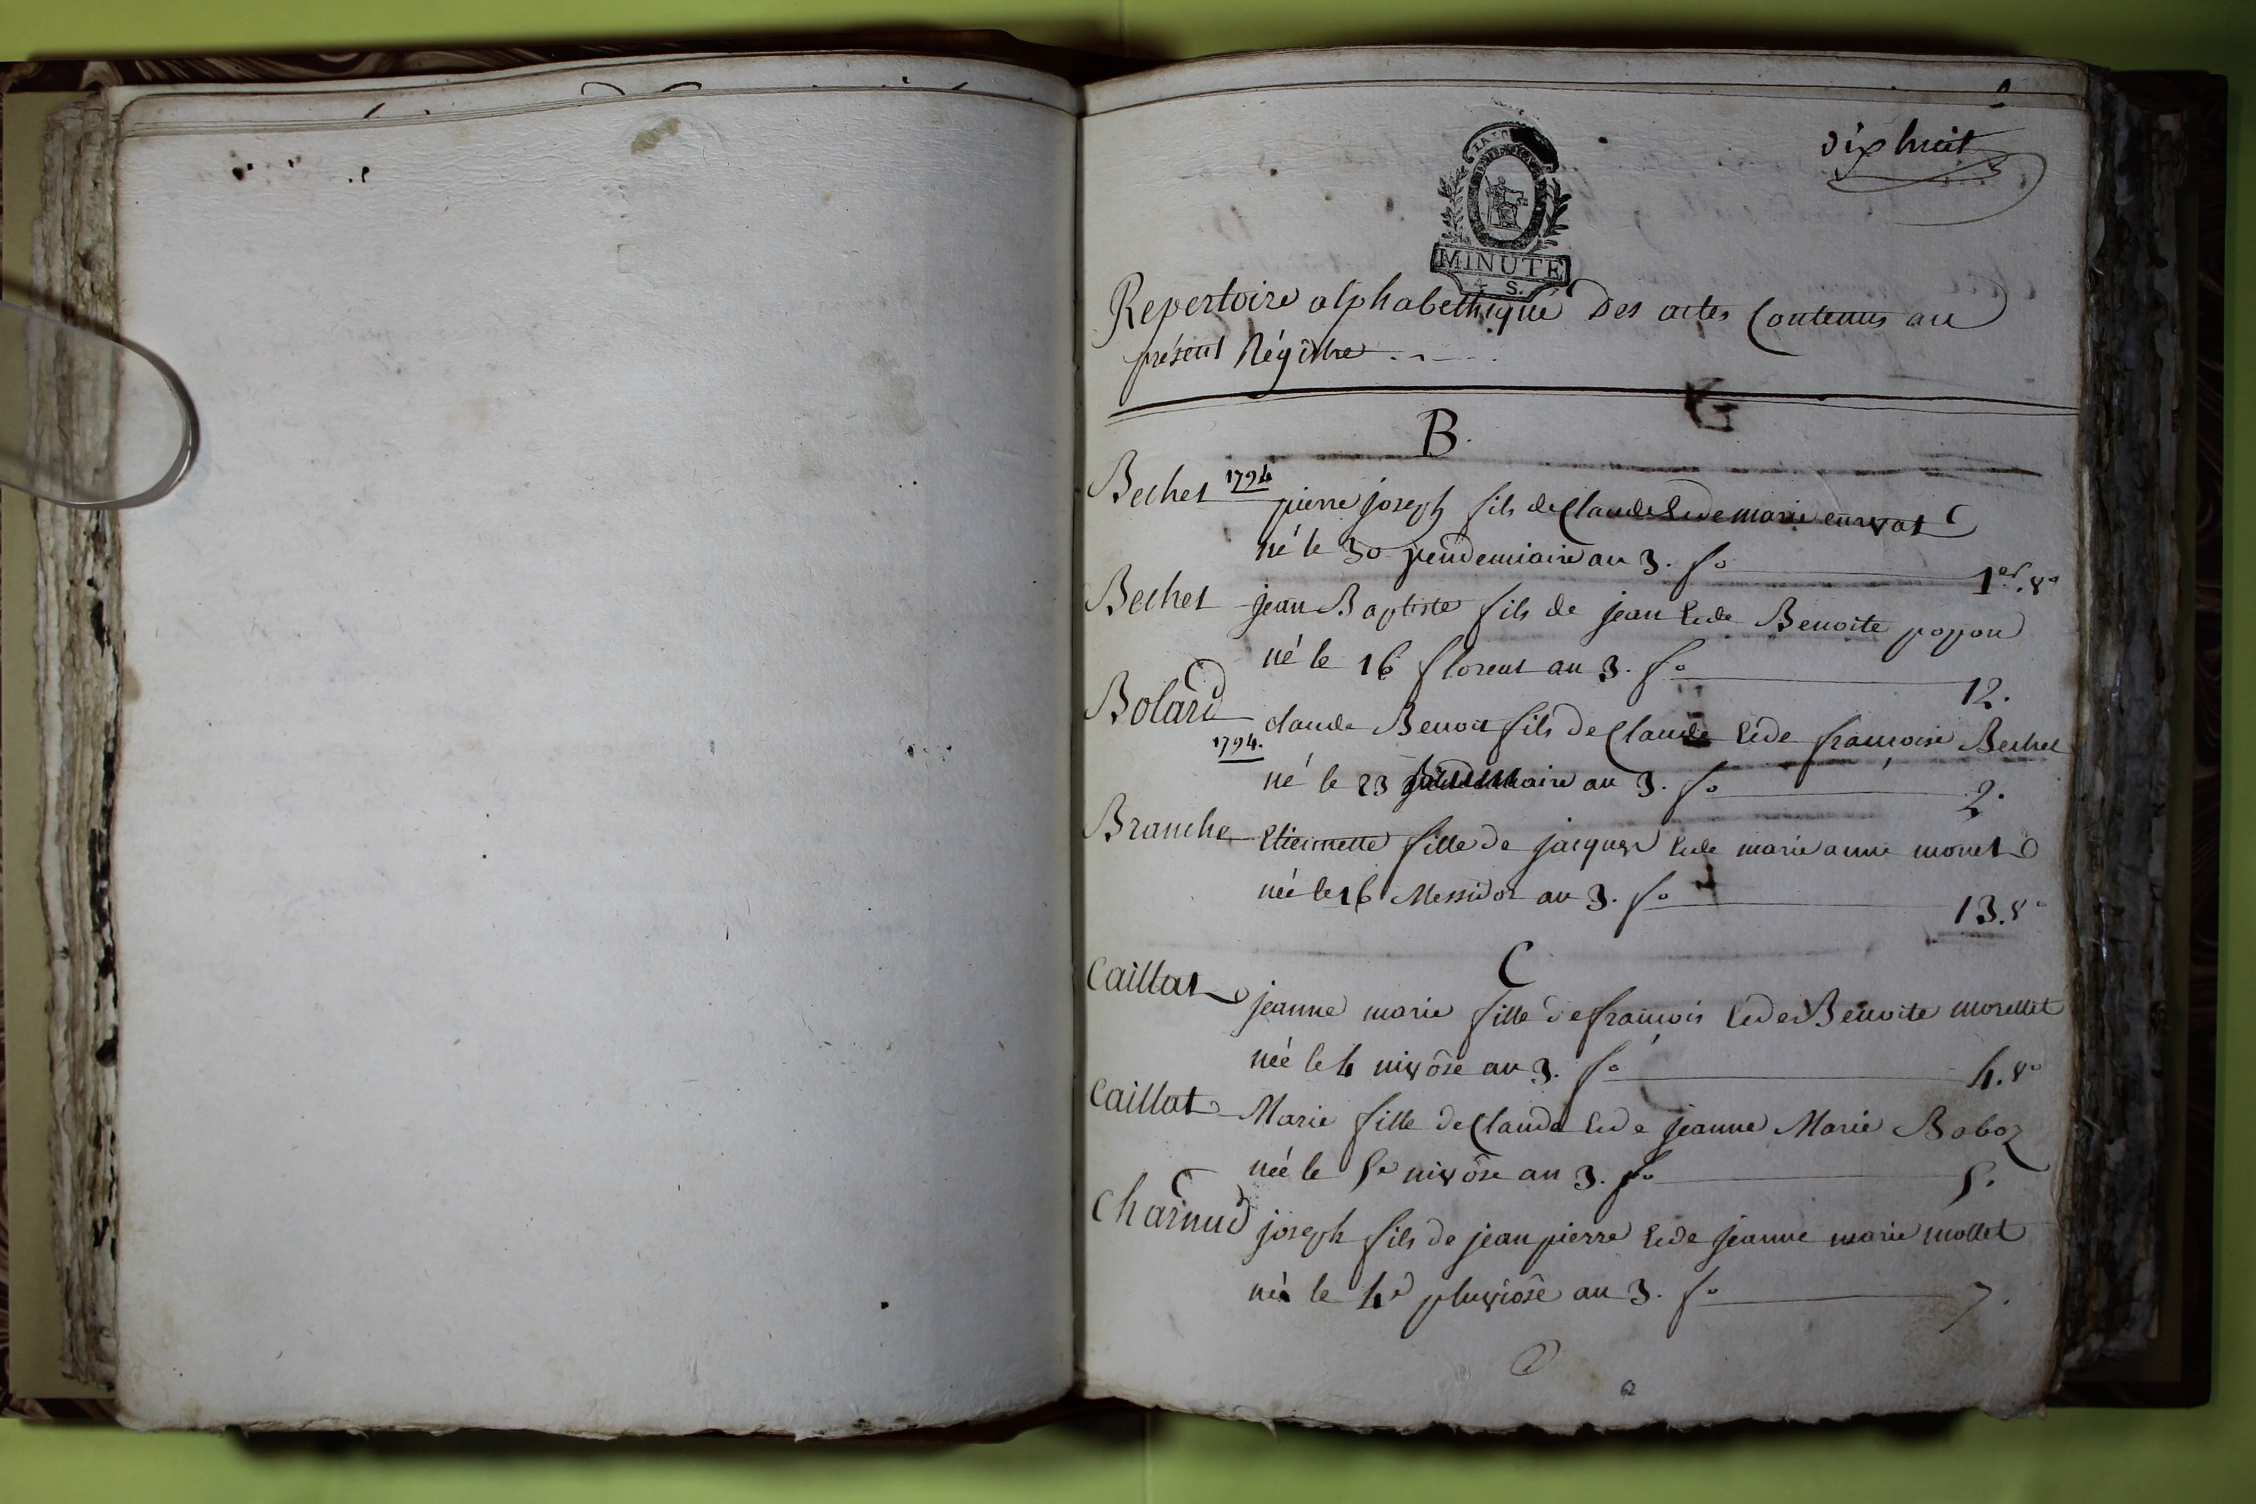 dix huit
MINUTE
4 S.
Repertoire alphabethique Des actes Contenus au
présent Régître
B.
Bechet 1794 pierre joseph fils de Claude & de marie
né le 30 vendemiaire an 3. fo 1er. vo
Bechet jean Baptiste fils de jean & de Benoite poyou
né le 16 floreal an 3. fo 12.
Bolard claude Benoit fils de Claude & de françoise Bechet
1794.
né le 23 an 3. fo 2.
Branche Etiennette fille de jacques & de marie anne monet
née le 16 Messidor an 3. fo 13. vo
C
Caillat jeanne marie fille de françois & de Benoite morellet
née le 4 nivôse an 3. fo 4. vo
Caillat Marie fille de Claude & de jeanne Marie Boboz
née le 5e nivôse an 3. fo 5.
Charnud joseph fils de jean pierre & de jeanne marie mollet
né le 4e pluviôse an 3. fo 7.
62